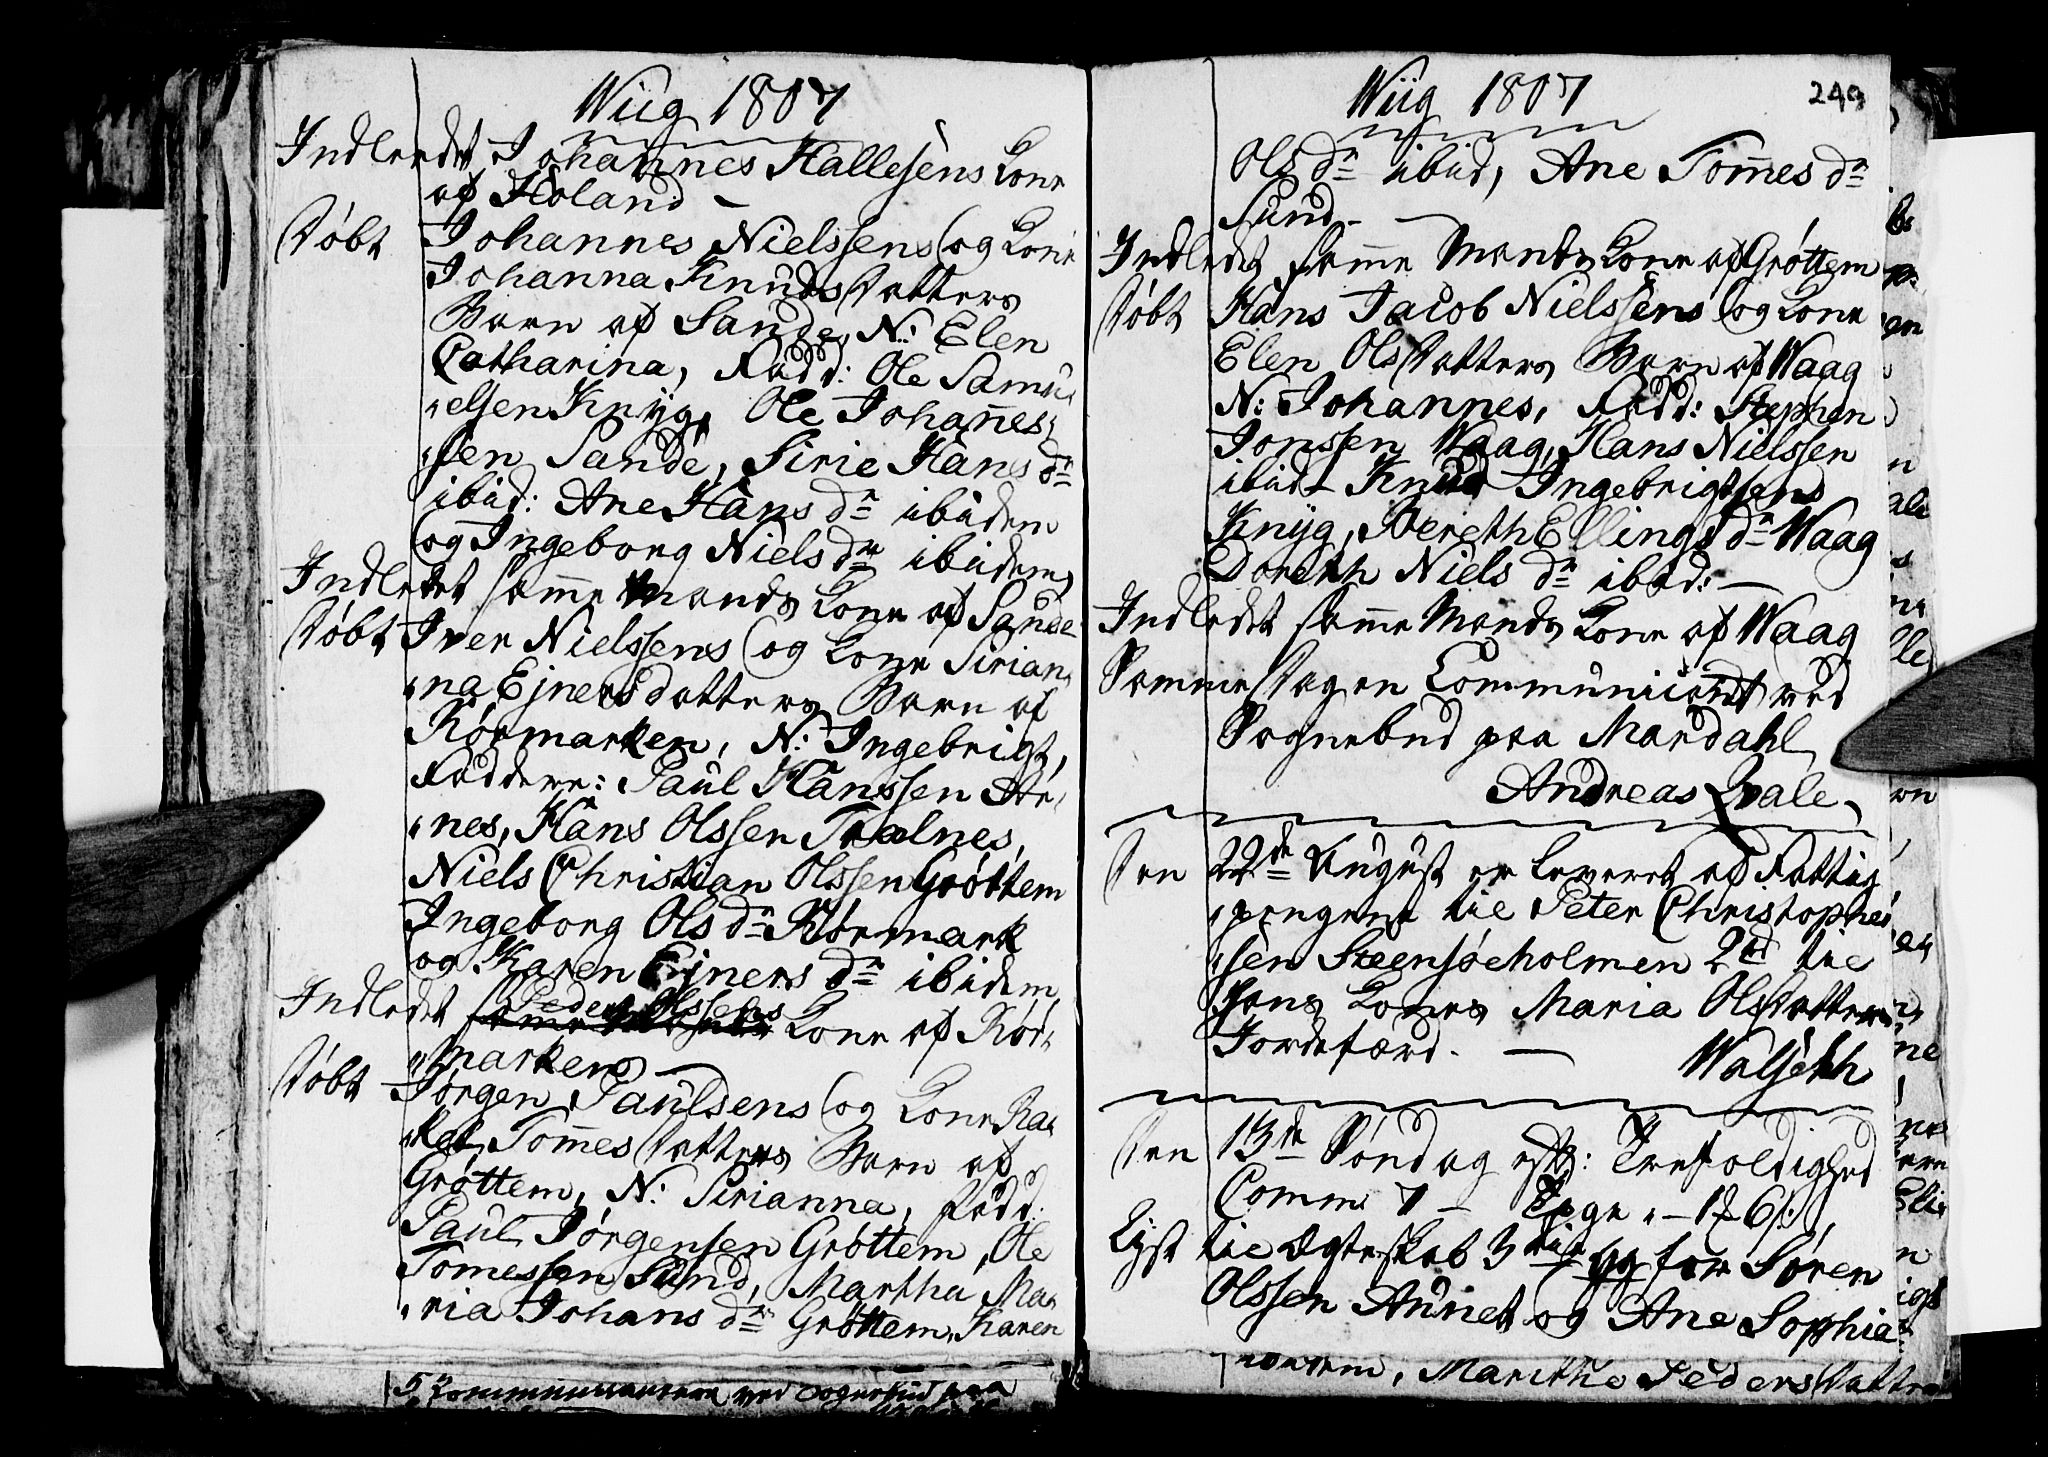 Wiig 1807
Indledet Johannes Hallesens Kone
af Höland -
Döbt Johannes Nielssens og Kone
Johanna Knudsdatters
Barn af Sande, N: Elen
Catharina, Fadd: Ole Samu
elsen Knyg, Ole Johan̄es
sen Sande, Sirie Hansdr
ibid: Ane Hansdr ibidem
og Ingeborg Nielsdr ibidem
Indledet sam̄e Mands Kone af Sande
Döbt Iver Nielssens og Kone Sirian
na Ejnersdatters Barn af
Rörmarken, N: Ingebrigt,
Faddere: Paul Hanssen
nes, Hans Olssen Trælnes,
Niels Christian Olssen Gröttem
Ingeborg Olsdr Rörmark
og Karen Ejnersdr ibidem
Peder Olssens
Indledet Kone af Rör
marken
Döbt Jörgen Paulsens og Kone Ra
kel Tom̄esdatters Barn af
Gröttem, N: Sirianna, Fadd:
Paul Jörgensen Gröttem, Ole
Tomessen Sund, Martha Ma
ria Johansdr Gröttem, Karen
5 Communicantere ved Sognebud paa
Wiig 1807
249
Olsdr ibid, Ane Tom̄esdr
Sund -
Indledet sam̄e Mands Kone af Gröttem
Döbt Hans Jacob Nielssens og Kone
Elen Olsdatters Barn af Waag
N: Johannes, Fadd: Stephen
Jonssen Waag, Hans Nielssen
ibid - Knud Ingebrigtsens
Knyg, Bereth Ellingsdr Waag
Doreth Nielsdr ibid: -
Indledet sam̄e Mands Kone af Waag
Samme Dag en Communicant ved
Sognebud paa Mardahl
Andreas Qvale
Den 22de August er leveret af Fattig
pengene til Peter Christophe
sen Steensöeholmen 2rd til
hans Kones Maria Olsdatters
Jordefærd. -
Walseth
Den 13de Söndag eft: Trefoldighed
Comm: 7 -
Lyst til Ægteskab 3die Gg for Sören
Olssen Aunet og Ane Sophia
Marithe Pedersdatter